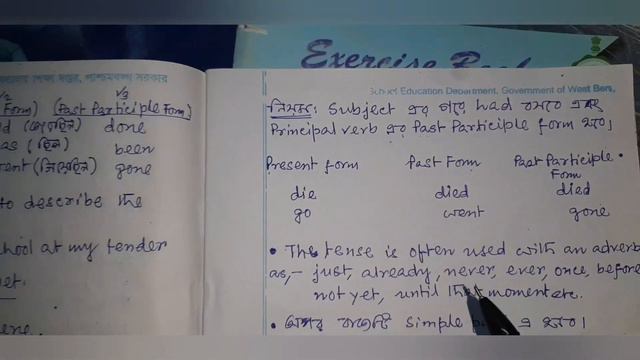 Exercise Book
শিক্ষা দপ্তর, পশ্চিমবঙ্গ সরকার
School Education Department, Government of West Ben
V3
Form) (Past Participle Form)
done
as (ছিল) been
gone
to describe the
chool at my tender
নিয়মঃ Subject এর পরে had বসবে এবং
Principal verb এর Past Participle form হবে।
Present form Past Form Past Participle Form
die died died
go went gone
• The tense is often used with an adverb
as,- just, already, never, ever, once, before
not yet, until that moment etc.
• অপর বাক্যটি simple এ হবে।